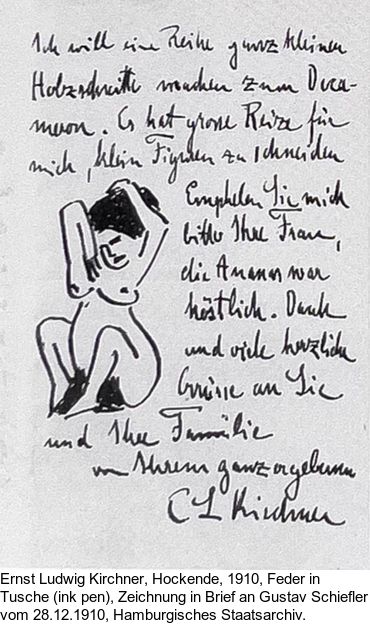 Ich will eine Reihe ganz kleiner
Holzschnitte machen zum Deca-
meron. Es hat grosse Reize für
mich, klein Figuren zu schneiden
Empfelen Sie mich
bitte Ihrer Frau,
die Ananas war
köstlich. Dank
und viele herzliche
Grüsse an Sie
und Ihre Familie
von Ihrem ganz ergebenen
E L Kirchner
Ernst Ludwig Kirchner, Hockende, 1910, Feder in
Tusche (ink pen), Zeichnung in Brief an Gustav Schiefler
vom 28.12.1910, Hamburgisches Staatsarchiv.